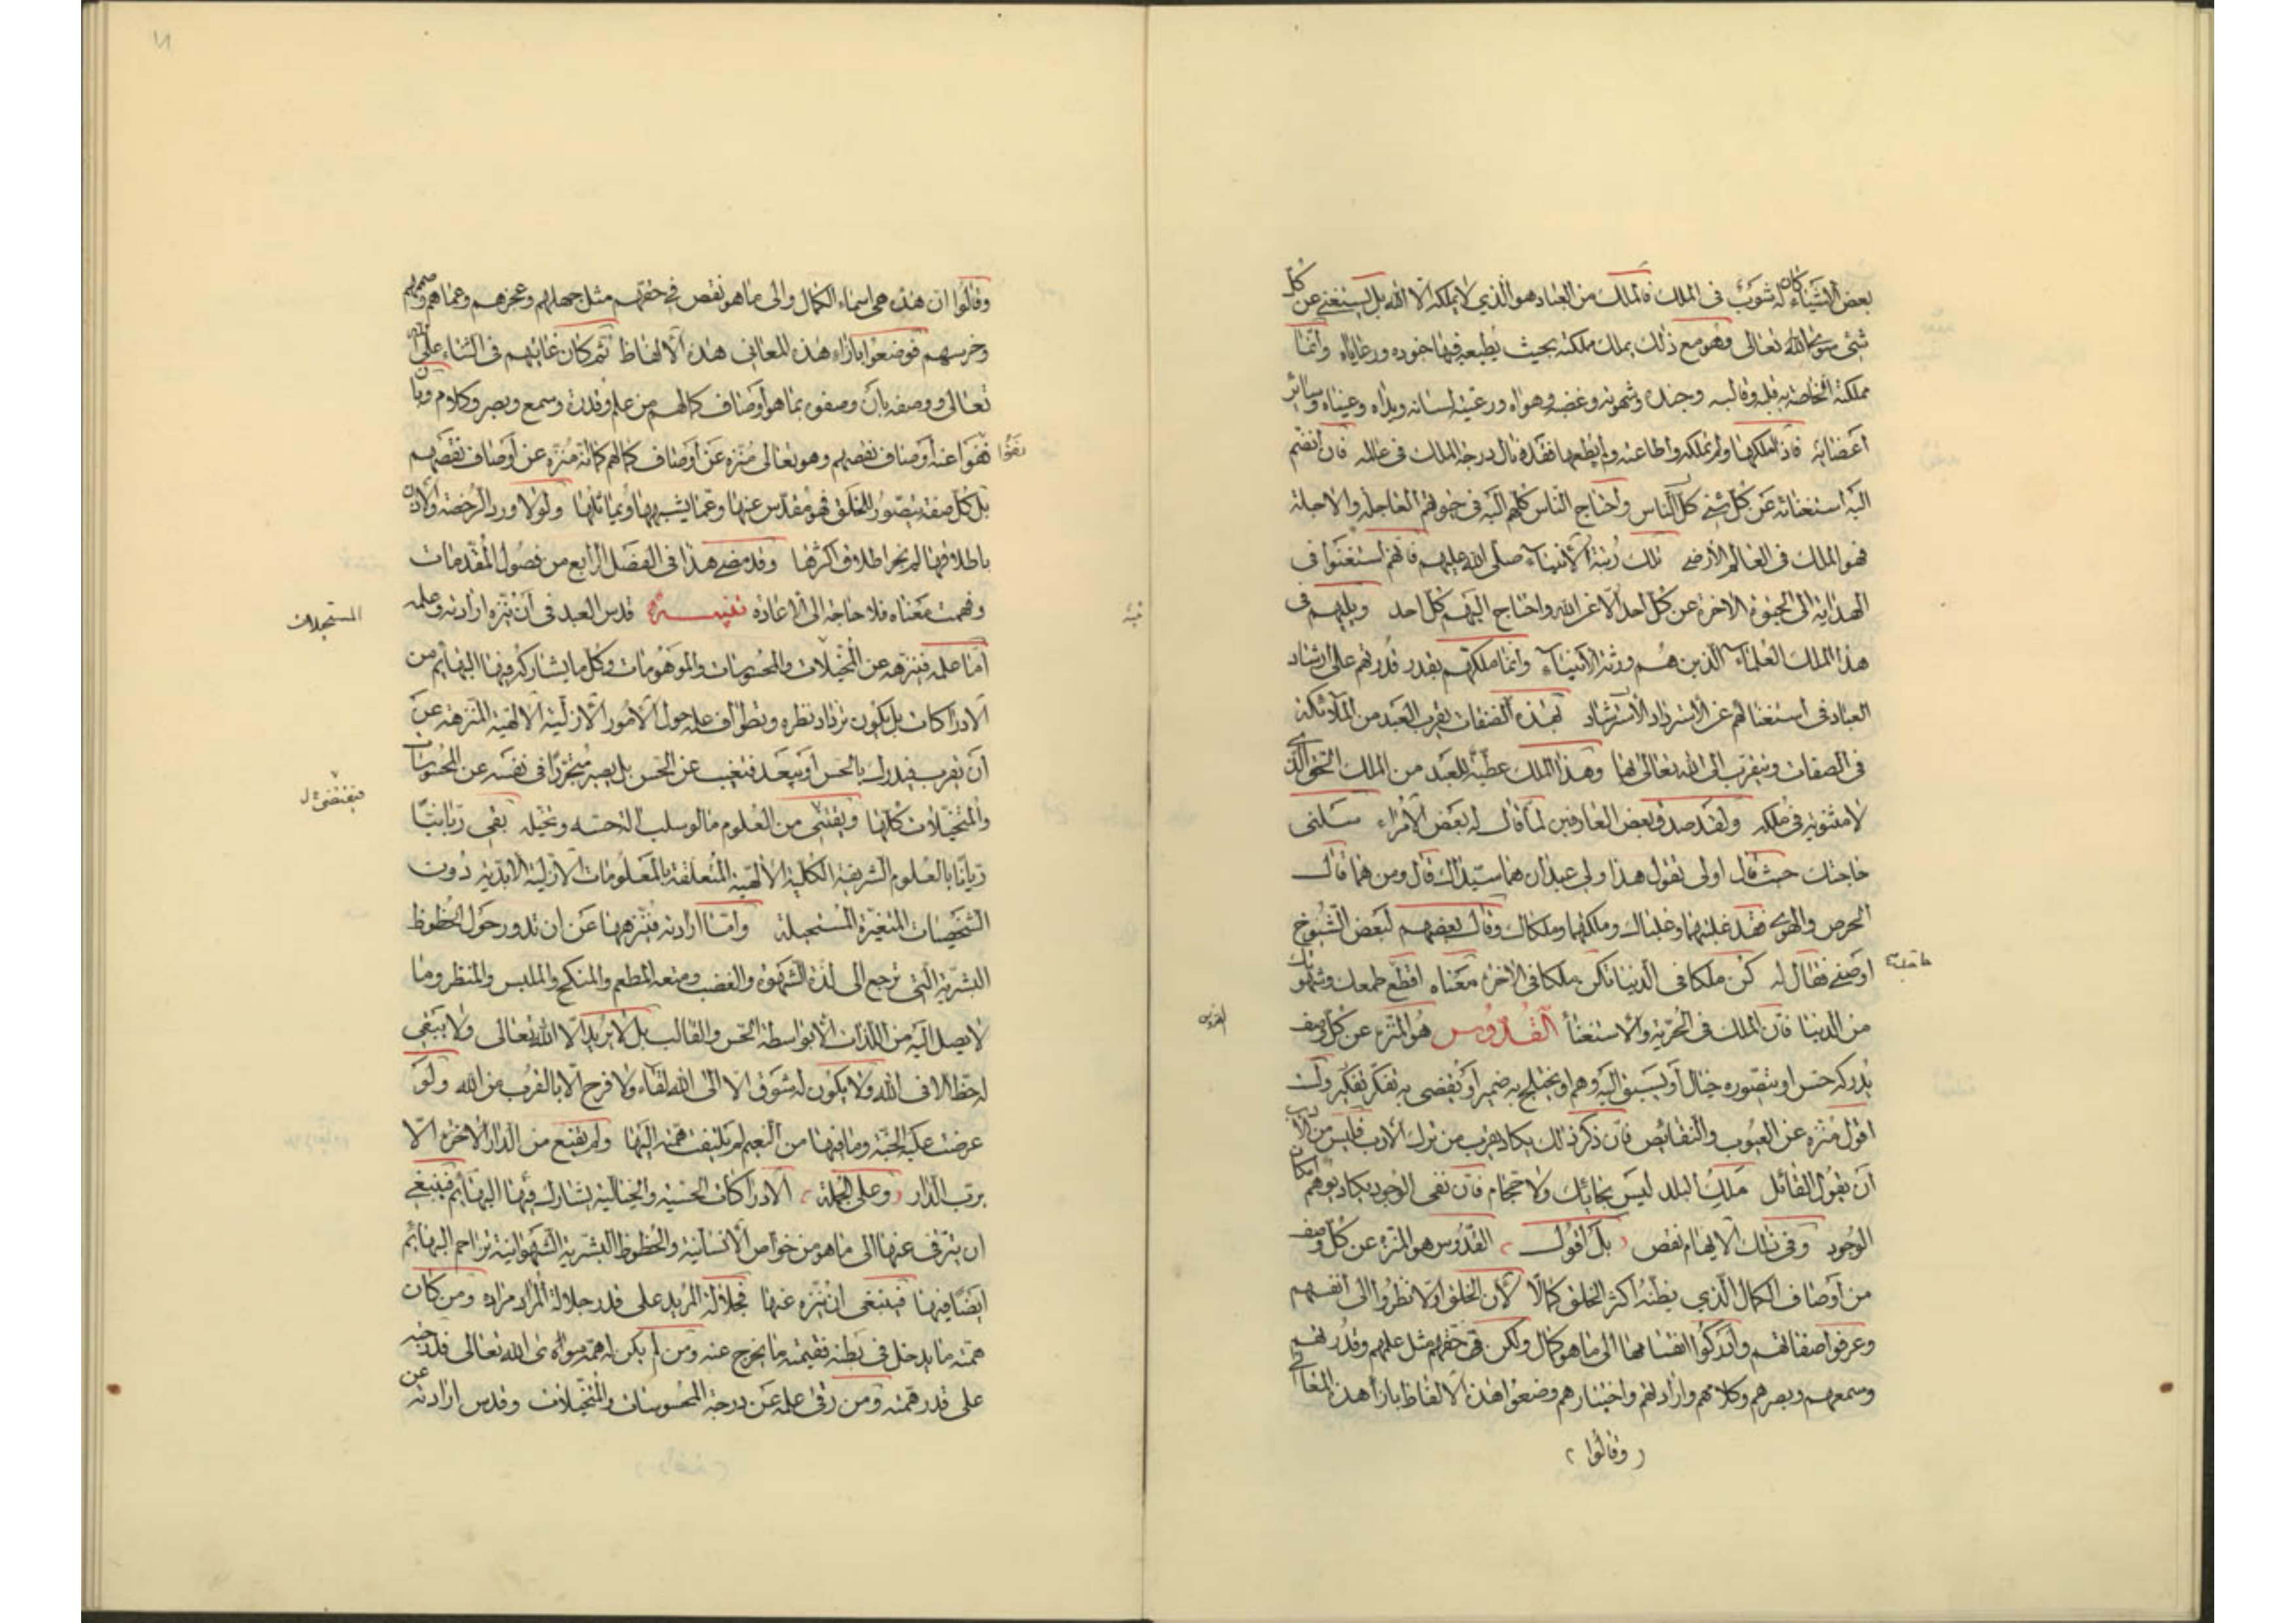 بعض الاشياء كان له شوب في الملك فالملك من العباد هو الذي لا يملكه الا الله بل يستغني عن كل
شئ سوى الله تعالى وهو مع ذلك يملك مملكته بحيث يطيعه فيها جنوده ورعاياه وانما
مملكته الخاصة به قلبه وقالبه وجنده وشهوته وغضبه وهواه ورعيته لسانه ويداه وعيناه وسائر
اعضائه فاذا ملكها ولم تملكه واطاعته ولم يطعها فقد نال درجة الملك في عالمه فان انضم
اليه استغنائه عن كل الناس واحتاج الناس كلهم اليه في حيوتهم العاجلة والاجلة
فهو الملك في العالم الارضي تلك رتبة الانبياء صلى الله عليهم فانهم استغنوا في
الهداية الى الحيوة الاخرة عن كل احد الا عن الله واحتاج اليهم كل احد ويليهم في
هذا الملك العلماء الذين هم ورثة الانبياء وانما ملكهم بقدر قدرتهم على ارشاد
العباد في استغنائهم عن الاسترشاد بهذه الصفات يقرب العبد من الملائكة
في الصفات ويتقرب الى الله تعالى بها وهذا الملك عطية للعبد من الملك الحق الذي
لا مثنوية في ملكه ولقد صدق بعض العارفين لما قال له بعض الامراء سلني
حاجتك حيث قال اولي تقول هذا ولي عبدان هما سيداك قال ومن هما قال
الحرص والهوى فقد غلبتهما وغلباك وملكتهما وملكاك وقال بعضهم لبعض الشيوخ
اوصني فقال له كن ملكا في الدنيا تكن ملكا في الاخرة معناه اقطع طمعك وشهوتك
من الدنيا فان الملك في الحرية والاستغنأ القدوس هو المنزه عن كل وصف
القدوس
يدركه حس او يتصوره خيال او يسبق اليه وهم او يختلج به ضمير او يفضي به تفكر ولست
اقول منزه عن العيوب والنقائص فان ذكر ذلك يكاد يقرب من ترك الادب فليس من الادب
ان يقول القائل ملك البلد ليس بحائك ولا حجام فان نفى الوجود يكاد يوهم امكان
الوجود وفي ذلك الايهام نقص بل اقول القدوس هو المنزه عن كل وصف
من اوصاف الكمال الذي يظنه اكثر الخلق كمالا لان الخلق اولا نظروا الى انفسهم
وعرفوا صفاتهم وادركوا انقسامها الى ما هو كمال ولكن في حقهم مثل علمهم وقدرتهم
وسمعهم وبصرهم وكلامهم وارادتهم واختيارهم وضعوا هذه الالفاظ بازأ هذه المعاني
وقالوا
وقالوا ان هذه هي اسماء الكمال والى ما هو نقص في حقهم مثل جهلهم وعجزهم وعماهم وصممهم
وخرسهم فوضعوا بازاء هذه المعاني هذه الالفاظ ثم كان غايتهم في الثناء على الله
تعالى ووصفه بان وصفوه بما هو اوصاف كمالهم من علم وقدرة وسمع وبصر وكلام وبان
نفوا
نفوا عنه اوصاف نقصهم وهو تعالى منزه عن اوصاف كمالهم كما انه منزه عن اوصاف نقصهم
بل كل صفة يتصور للخلق فهو مقدس عنها وعما يشبهها ويماثلها ولولا ورد الرخصة والاذن
باطلاقها لم يجز اطلاق اكثرها وقد مضى هذا في الفصل الرابع من فصول المقدمات
وفهمت معناه فلا حاجة الى الاعادة تنبيه قدس العبد في ان ينزه ارادته وعلمه
تنبيه
اما علمه فينزهه عن المتخيلات والمحسوسات والموهومات وكل ما يشاركه فيها البهائم من
الادراكات بل يكون ترداد نظره وتطواف علمه حول الامور الازلية الالهية المنزهة عن
ان يقرب فيدرك بالحس او يبعد فيغيب عن الحس بل يصير متجردا في نفسه عن المحسوسات
والمتخيلات كلها ويقتني من العلوم ما لو سلب الة حسه وتخيله بقي ريانا
ريانا بالعلوم الشريفة الكلية الالهية المتعلقة بالمعلومات الازلية الابدية دون
الشخصيات المتغيرة المستحيلة واما ارادته فينزهها عن ان تدور حول الحظوظ
البشرية التي ترجع الى لذة الشهوة والغضب ومتعة المطعم والمنكح والملبس والمنظر وما
لا يصل اليه من اللذات الا بواسطة الحس والقالب بل لا يريد الا الله تعالى ولا يبقى
له حظ الا في الله ولا يكون له شوق الا الى الله لقاء ولا فرح الا بالقرب من الله ولو
عرضت عليه الجنة وما فيها من النعيم لم يلتفت همته اليها ولم يقنع من الدار الاخرة الا
برب الدار وعلى الجملة الادراكات الحسية والخيالية يشارك فيها البهائم فينبغي
ان يترقى عنها الى ما هو من خواص الانسانية والحظوظ البشرية الشهوانية تزاحم البهائم
ايضا فيها فينبغي ان يتنزه عنها فجلالة المريد على قدر جلالة المراد مراده ومن كان
همته ما يدخل في بطنه فقيمته ما يخرج عنه ومن لم يكن له همة سوى الله تعالى فدرجته
على قدر همته ومن رقى علمه عن درجة المحسوسات والمتخيلات وقدس ارادته عن